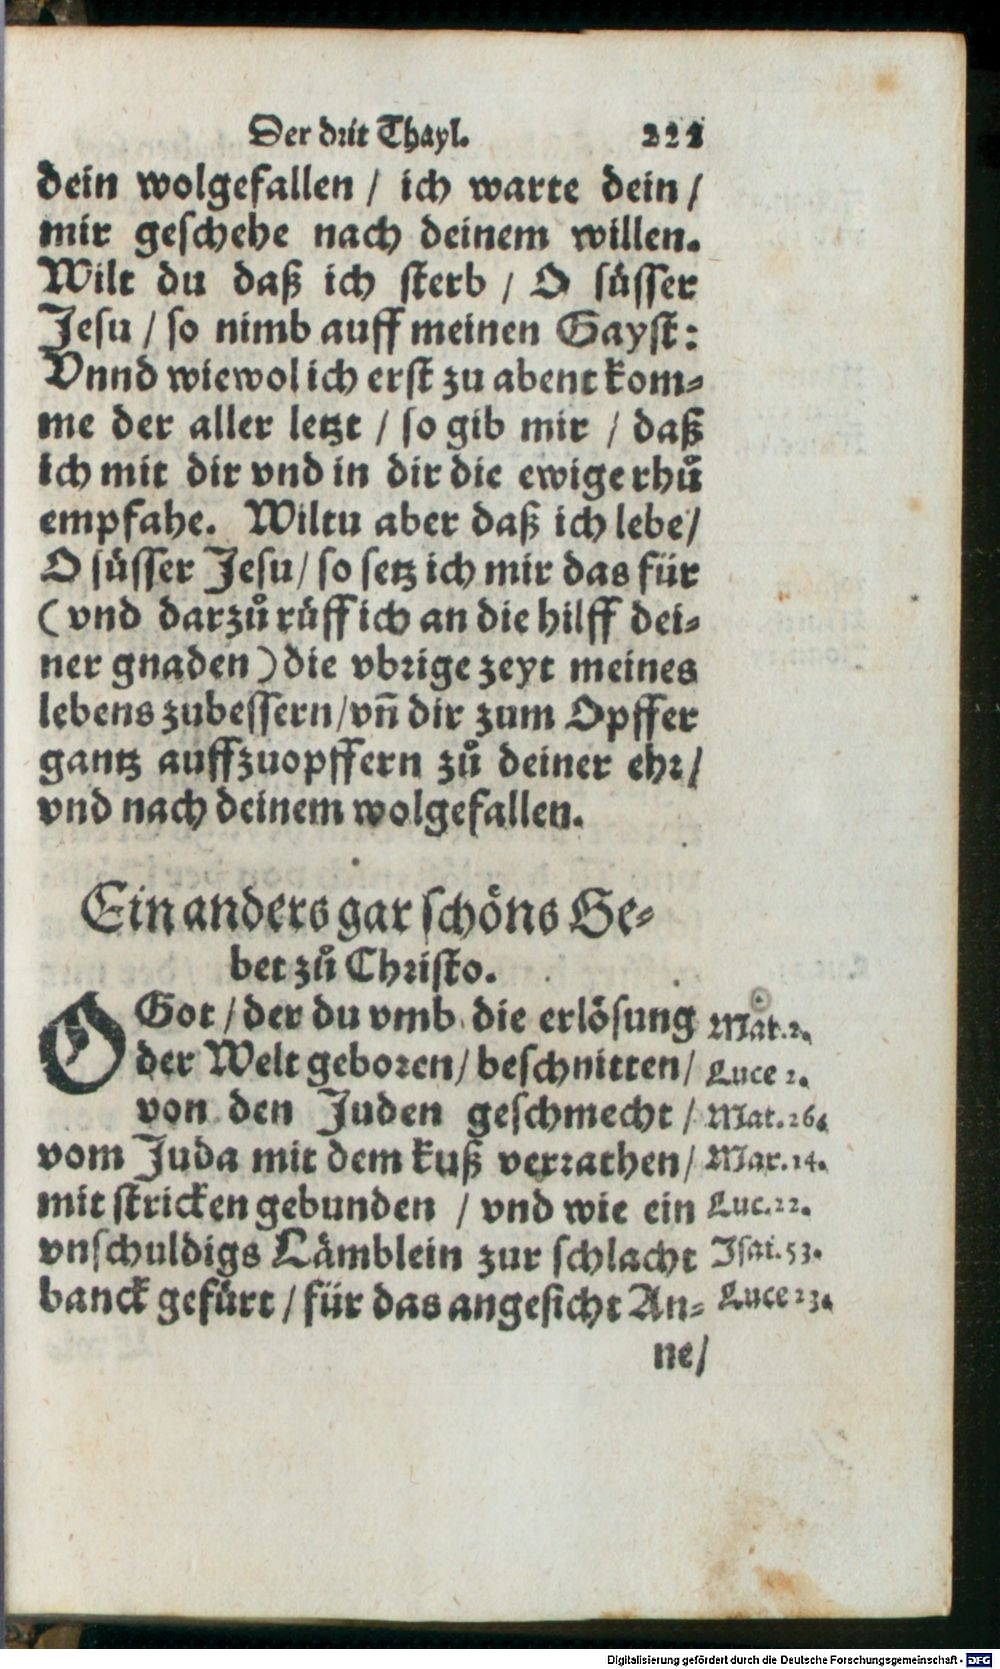 Der drit Thayl. 222
dein wolgefallen / ich warte dein /
mir geschehe nach deinem willen.
Wilt du daß ich sterb / O süsser
Jesu / so nimb auff meinen Gayst:
Vnnd wiewol ich erst zu abent kom⸗
me der aller letzt / so gib mir / daß
ich mit dir vnd in dir die ewige rhů
empfahe. Wiltu aber daß ich lebe /
O süsser Jesu / so setz ich mir das für
(vnd darzů rüff ich an die hilff dei⸗
ner gnaden) die vbrige zeyt meines
lebens zubessern / vñ dir zum Opffer
gantz auffzuopffern zů deiner ehr /
vnd nach deinem wolgefallen.
Ein anders gar schöns Ge⸗
bet zů Christo.
O Got / der du vmb die erlösung Mat. 2.
der Welt geboren / beschnitten / Luce 2.
von den Juden geschmecht / Mat. 26.
vom Juda mit dem kuß verrathen / Mar. 14.
mit stricken gebunden / vnd wie ein Luc. 22.
vnschuldigs Lämblein zur schlacht Isai. 53.
banck gefürt / für das angesicht An⸗ Luce 23.
ne /
Digitalisierung gefördert durch die Deutsche Forschungsgemeinschaft - DFG